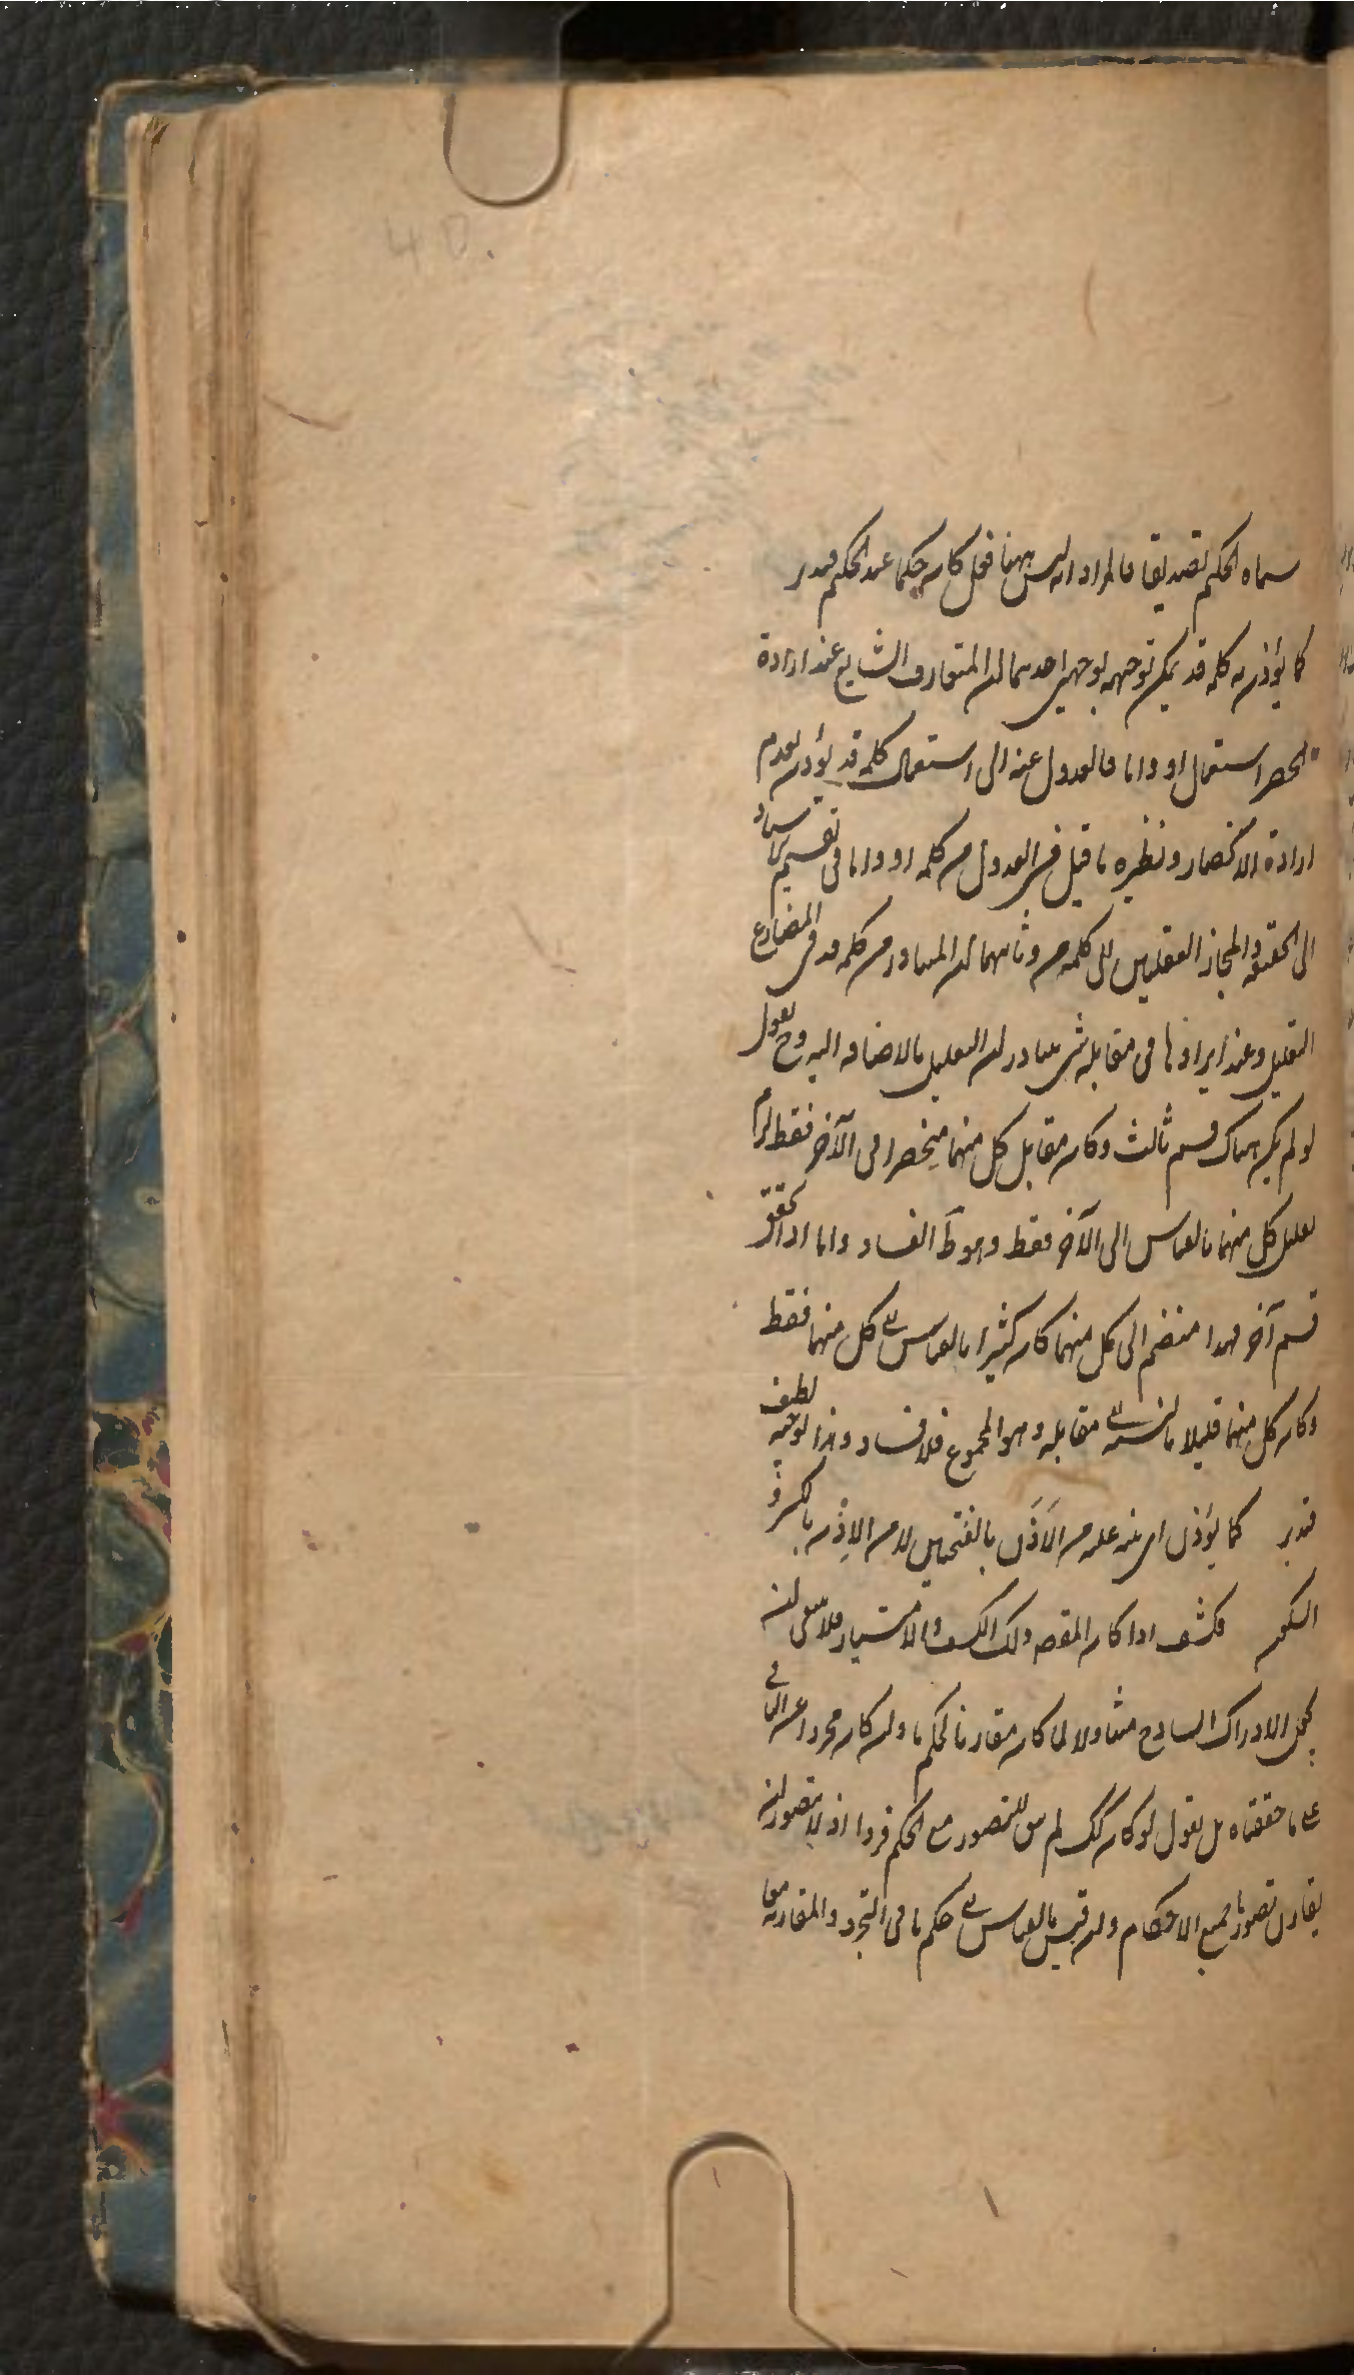 سماه الحكم تصديقا فالمراد انه ليس ههنا فعل كان حكما عند الحكم فتدبر
كما يؤذن به كلمة قد يمكن توجيهه بوجهين احدهما ان المتعارف الشايع عند ارادة
الحصر استعمال او واما فالعدول عنه الى استعمال كلمة قد يؤذن بعدم
ارادة الانحصار ونظيره ما قيل في العدول من كلمة او واما فى تقسيم الاسناد
الى الحقيقة والمجاز العقليين الى كلمة من وثانيهما ان المتبادر من كلمة قد فى المضارع
التقليل وعند ايرادها فى مقابلة شئ يتبادر ان التقليل بالاضافة اليه وح نقول
لو لم يكن هناك قسم ثالث وكان مقابل كل منهما منحصرا فى الآخر فقط لزم
تقليل كل منهما بالقياس الى الآخر فقط وهو ظ الفساد واما اذا تحقق
قسم آخر فهذا منضم الى كل منهما كان كثيرا بالقياس الى كل منهما فقط
وكان كل منهما قليلا بالنسبة الى مقابله وهو المجموع فلا فساد وهذا توجيه لطيف
فتدبر كما يؤذن اى ينبه عليه من الاَذَن بالفتحتين لا من الاِذن بالكسر و
السكون فكشف اذا كان المقصد ذلك الكشف والامتياز فلا ينبغى ان
يجعل الادراك الساذج متناولا لما كان مقارنا لحكم ما وان كان مجردا عن الباقى
على ما حققناه بل نقول لو كان كك لم يبق للتصور مع الحكم فردا اذ لا يتصور ان
يقارن تصور ما جميع الاحكام وان قيس بالقياس الى حكم ما فى التجرد والمقارنة معا